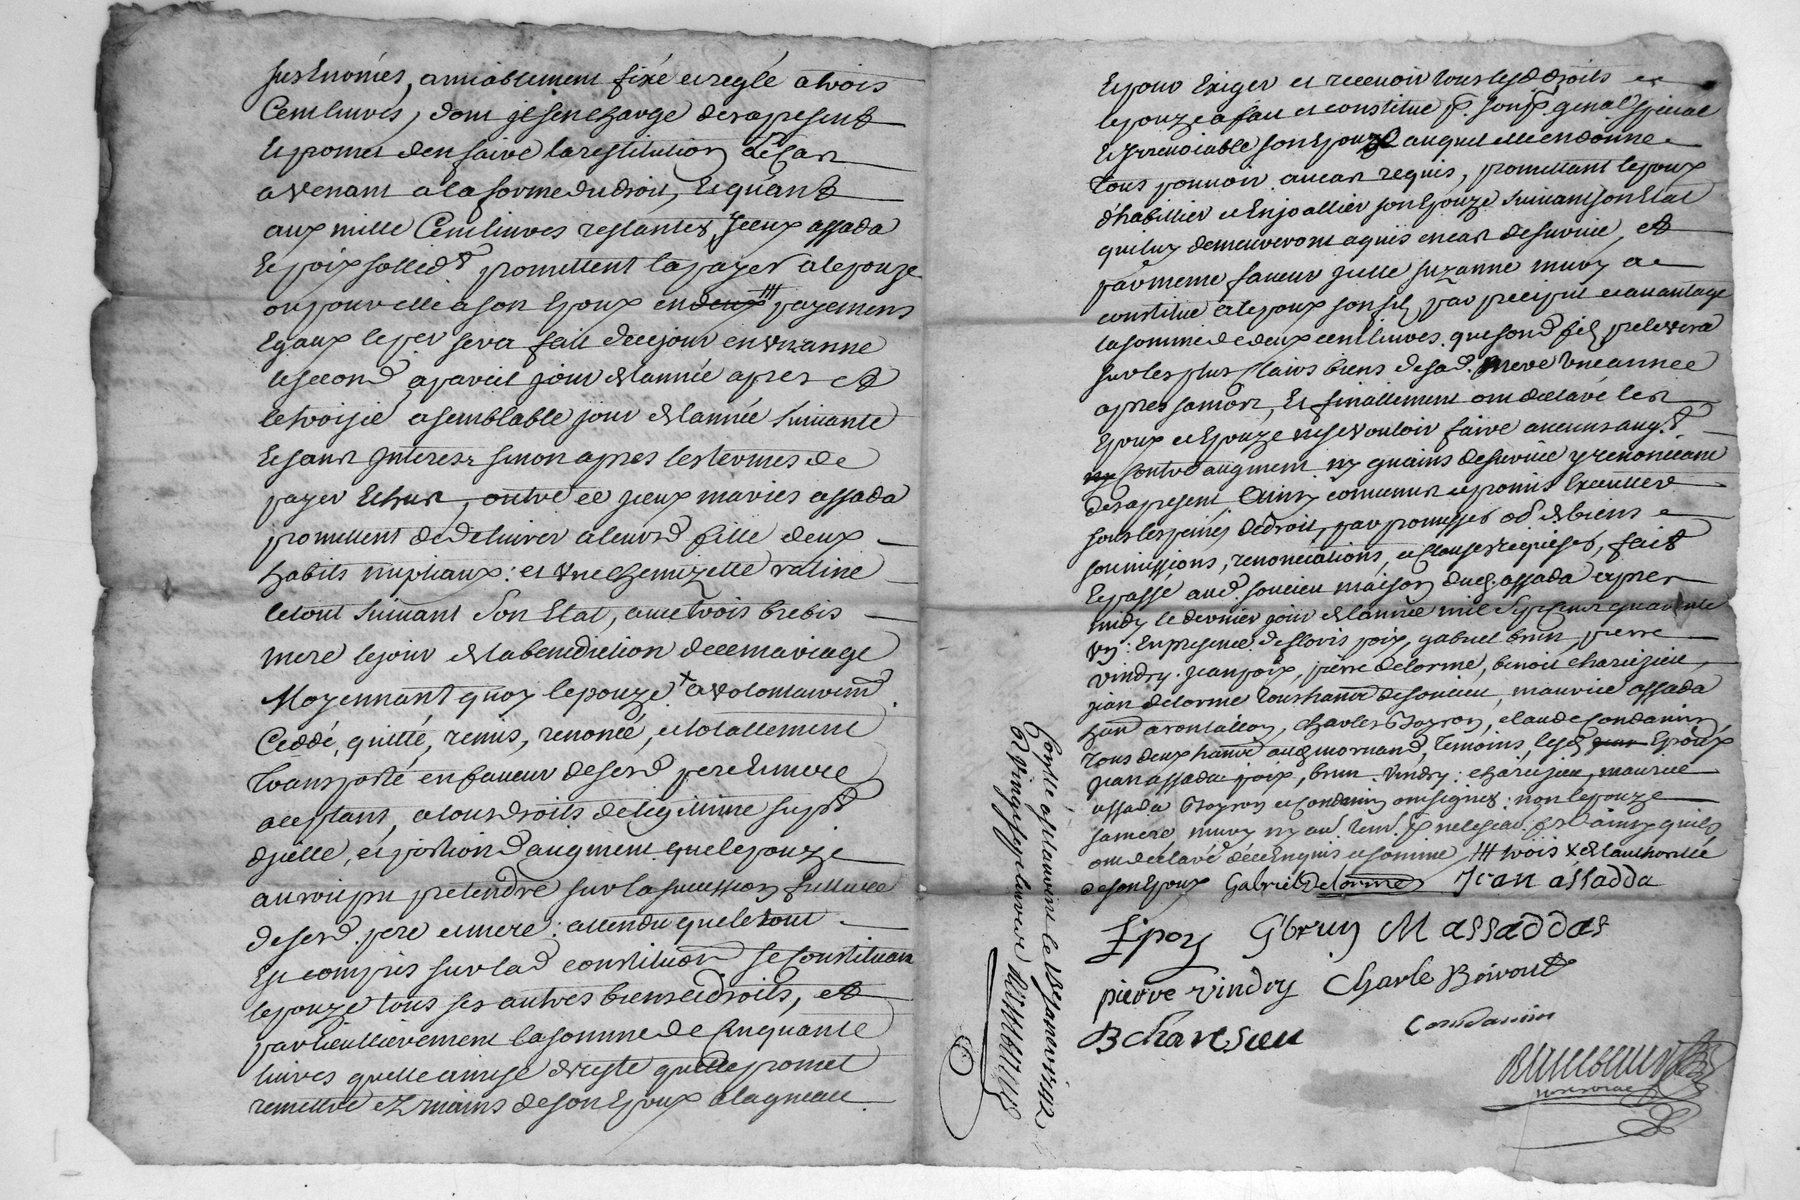 susnomés, amiablement fixé et reglé a trois
Cent livres, dont il sen charge des apresent
Et promet den faire la restitution le cas
avenant a la forme du droit, Et quant
aux mille Cent livres restantes, Iceux assada
et poix sollidt promettent la payer a lepouze
ou pour elle a son Epoux en deux /// payemens
Egaux le per sera fait de ce jour en un anne
le second a pareil jour de lannée apres et
le troisie a semblable jour de lannée suivante
Et sans Interest sinon apres les termes de
payer Echus, outre ce Iceux maries assada
promettent de delivrer a leurd fille deux
habits nuptiaux: et une chemizette ratine
le tout suivant son Etat, avec trois brebis
mere le jour de la benediction de ce mariage
Moyennant quoy lepouze x a volontairemt
Ceddé, quitté, remis, renoncé, et totallement
transporté en faveur de sesd pere Et mere
acceptans, a tous droits de legitime suplt
dicelle, et portion daugment que lepouze
auroit pu pretendre sur la succession future
de sesd. pere et mere; attendu que le tout
Est compris sur lad constitution se constituant
lepouze tous ses autres biens et droits, et
particulierement la somme de Cinquante
livres quelle a mise de reste quelle promet
remettre Ez mains de son Epoux
Et pour Exiger et recevoir tous lesd droits
lepouze a fait et constitue pr. son pr. gnal special
Et Irrevocable son Epoux auquel elle en donne
tous pouvoir au cas requis, promettant lepoux
dhabillier et Enjoallier son Epouze suivant son Etat
qui luy demeureront aquis en cas de survie, et
par meme faveur jcelle suzanne mury a
constitué a lepoux son fils, par precipu et avantage
la somme de deux cent livres. que sond fils prelevera
sur les plus clairs biens de sad. mere une année
apres sa mort, Et finallement ont declaré les
Epoux et Epouze ne se vouloir faire aucuns augt
ny Contre augment ny gains de survie y renoncant
des apresent Ainsy convenus et promis Executter
sous les peines de droit, par promesses obt de biens
soumissions, renonciations, et clauses requises, fait
Et passé aud. soucieu maison dud. assada apres
midy le dernier jour de lannée mil sept cent quarante
un: En presence de floris poix, gabriel brun, pierre
vindry. jean poix, pierre delorme, benoit charezieu,
jean delorme tous hants de soucieu, maurice assada
hant a rontallon, charles Boyron, claude Condamin
tous deux hants aud mornand, temoins, lesd Epoux
jean assada poix, brun. vindry: charezieu, maurice
assada Boyron et Condamin ont signes: non lepouze
sa mere mury ny aud. tem. pr ne le scav. fre ainsy quils
ont declaré de ce Enquis et sommé /// trois x de lauthorité
de son Epoux Gabriel Delorme Jean assadda
fpoy Gbrun M assaddas
pierre vindry Charle Boiront
B charesieu Condamin
notaire
Conttle a st laurent le 12 janvier 1742